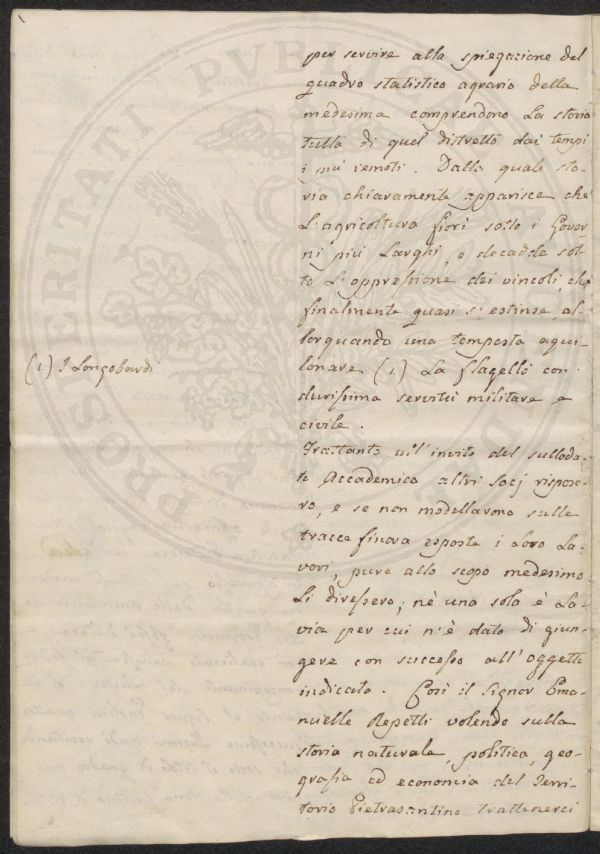 per servire alla spiegazione del
quadro statistico agrario della
medesima comprendono La storia
tutta di quel distretto dai tempi
i più remoti. Dalla quale sto-
ria chiaramente apparisce che
L'agricoltura fiorì sotto i Gover-
ni più Larghi, e decadde sot-
to L'oppressione dei vincoli, che
finalmente quasi s'estinse, al-
lorquando una tempesta aqui-
lonare (1) La flagellò con
durissima servitù militare e
civile.
(1) I Longobardi
Frattanto all'invito del sulloda-
to Accademico altri Socj rispose-
ro, e se non modellarono sulle
tracce finora esposte i Loro La-
vori, pure allo scopo medesimo
Li diressero; nè una sola è La
via per cui n'è dato di giun-
gere con successo all'oggetto
indicato. Così il Signor Ema-
nuelle Repetti volendo sulla
storia naturale, politica, geo-
grafia ed economia del Terri-
torio Pietrasantino trattenerci
PROSPERITATI PVBLICAE